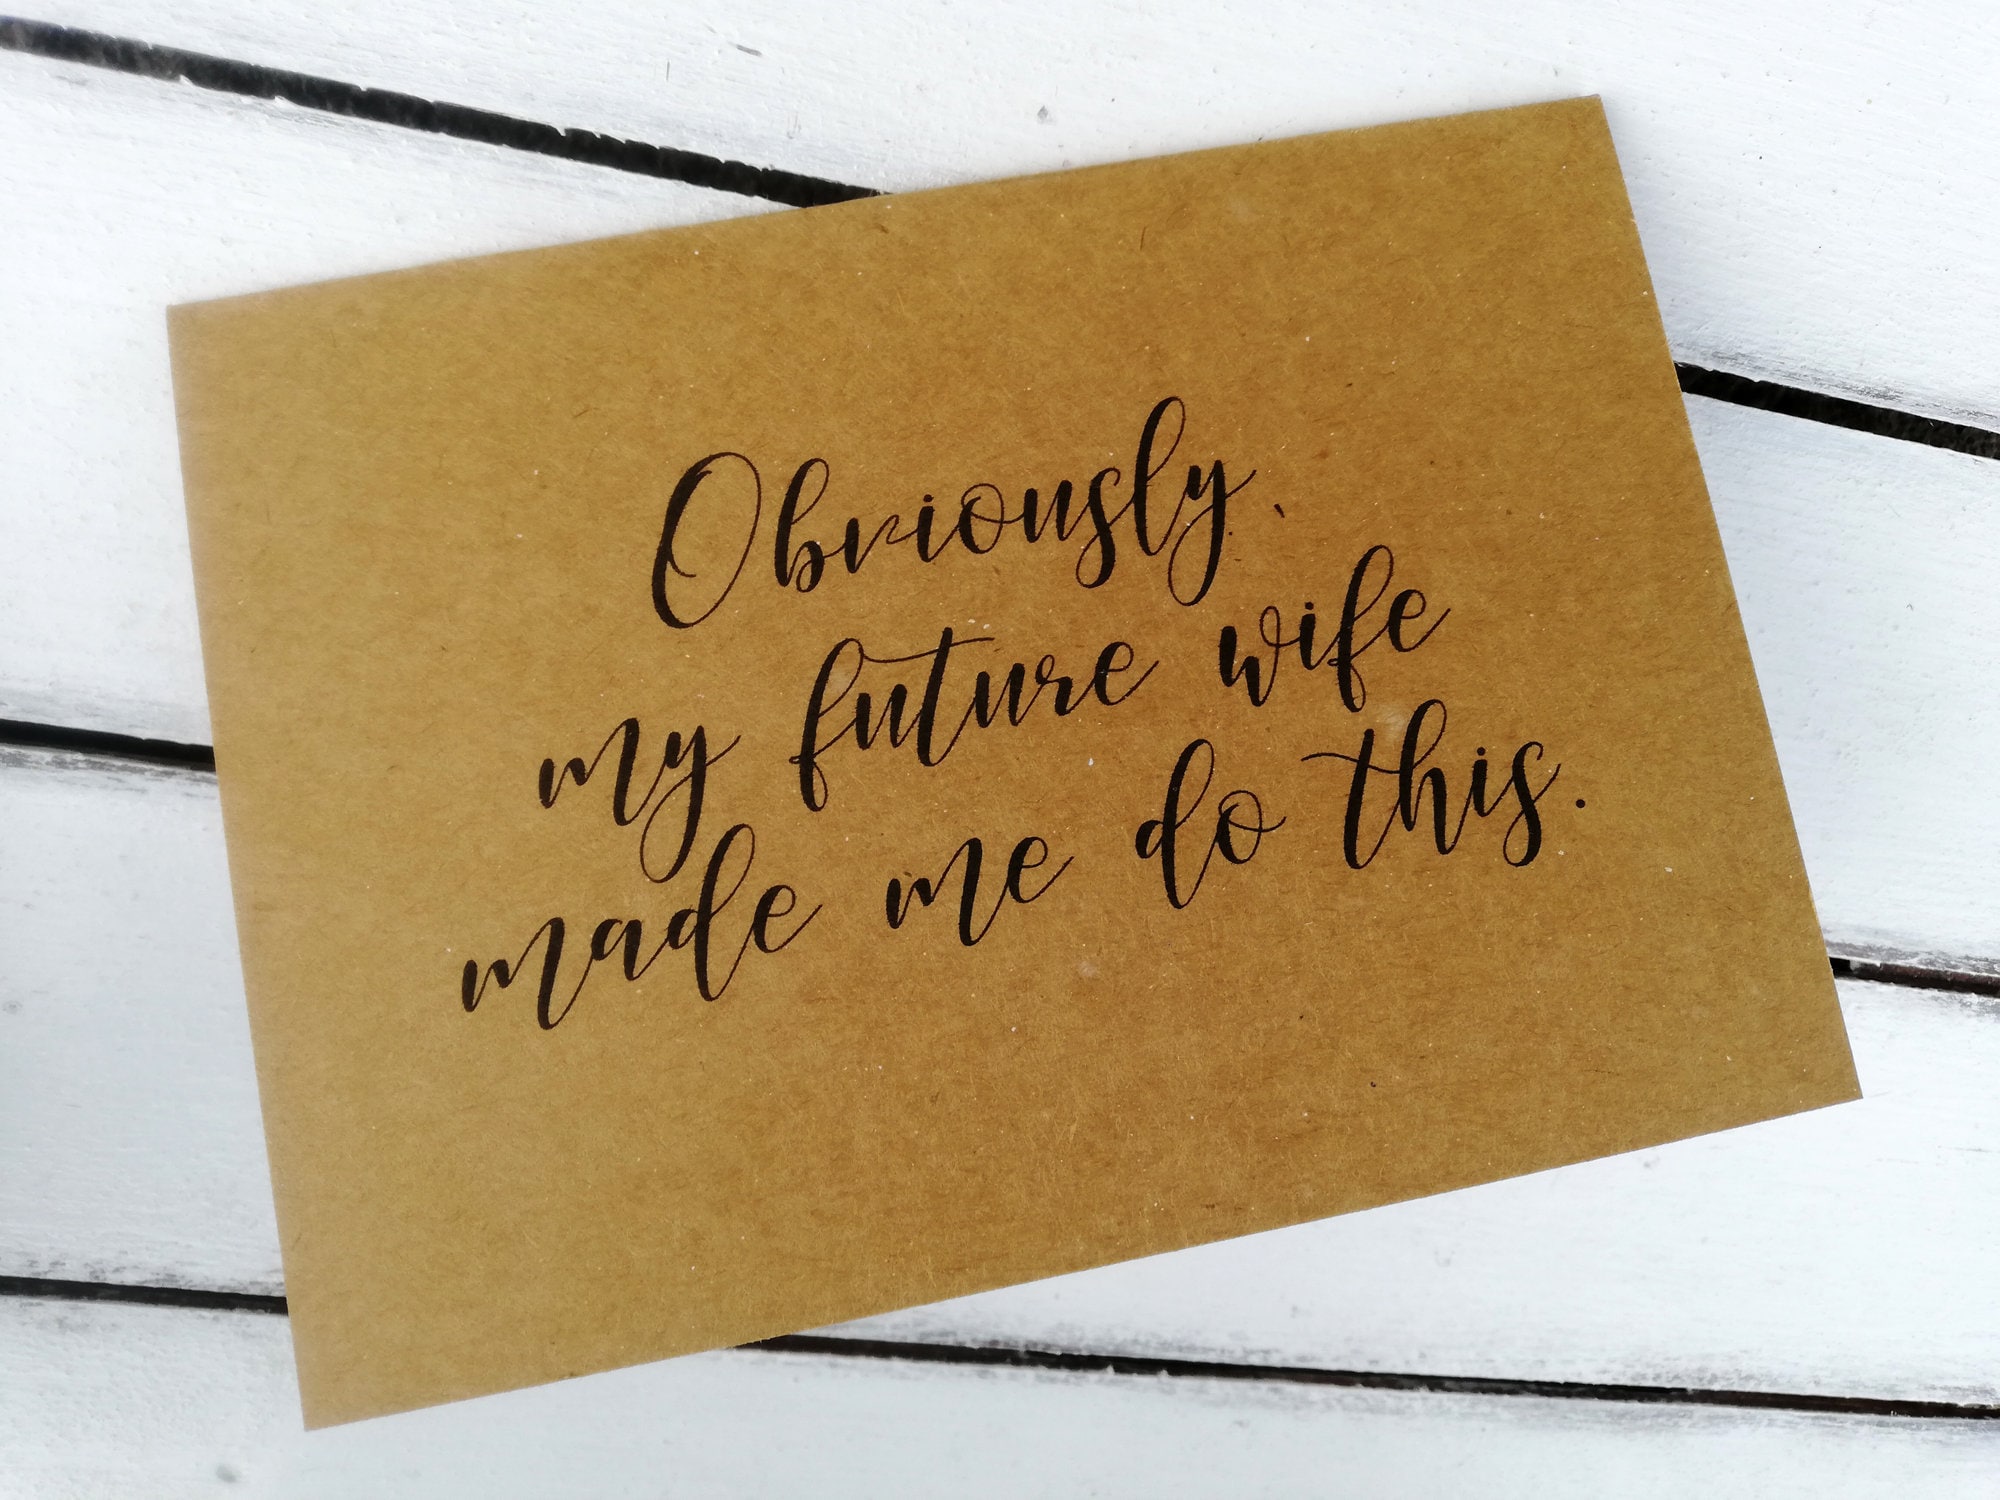 Obviously,
my future wife
made me do this.